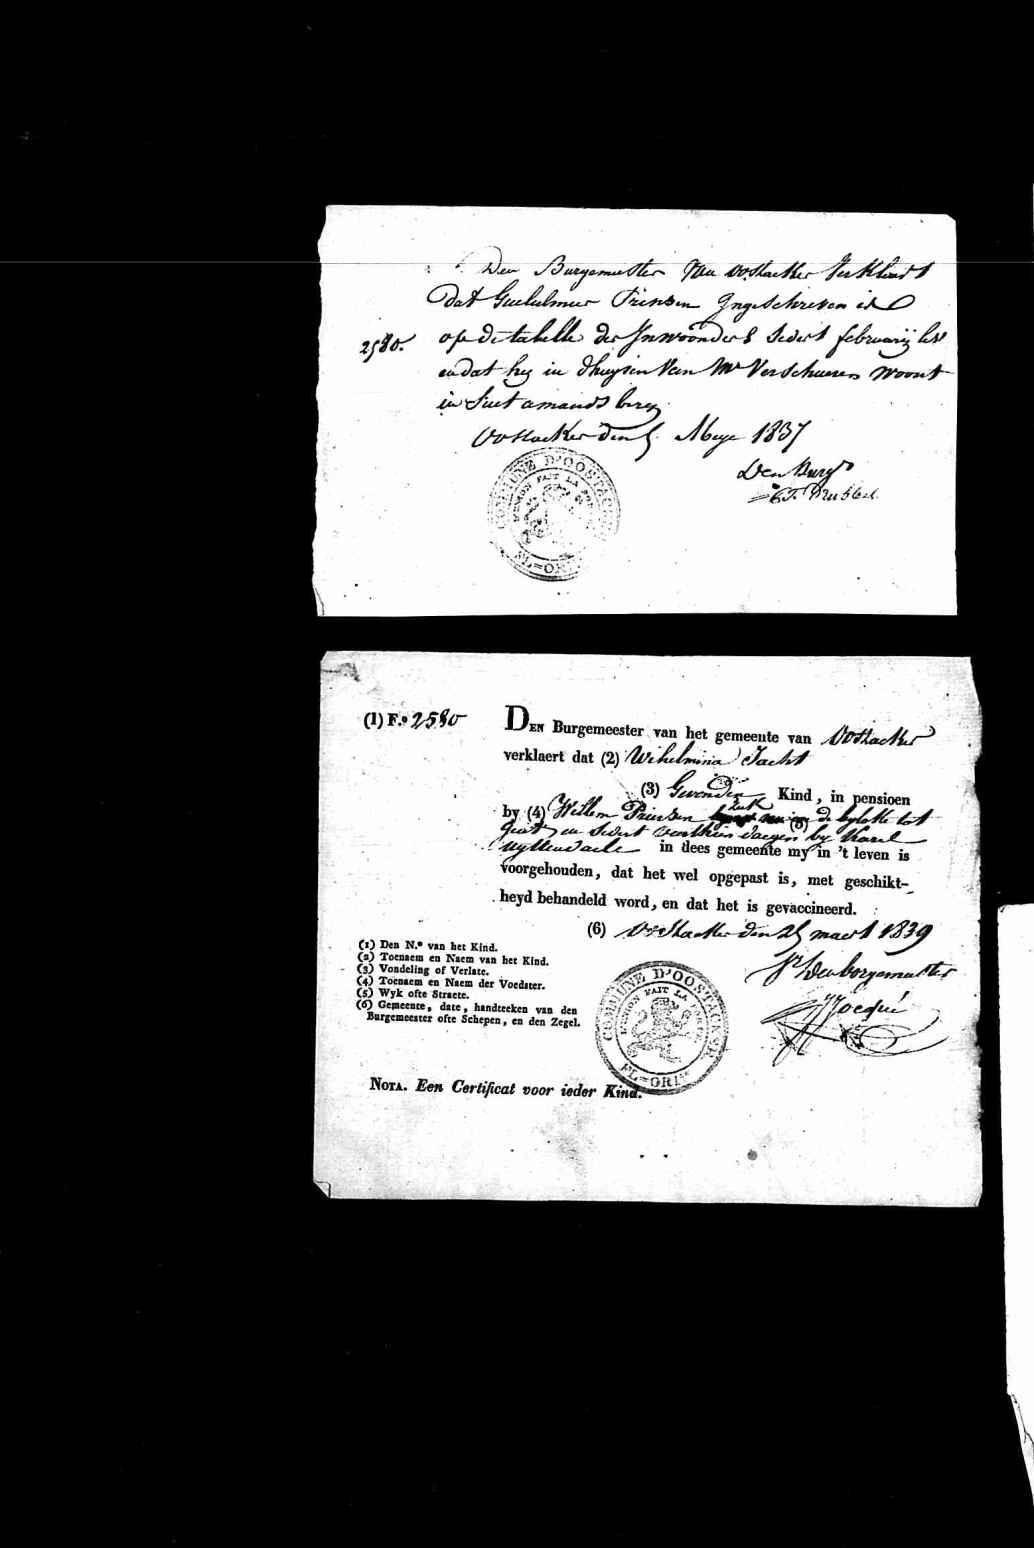 Den Burgemeester van oostacker verklaert
dat Guelielmus Prinsen Ingeschreven is
op de tabelle der Inwoonders sedert february
2580.
en dat hy in d'huysen van Mr Verschueren woont
in Sint amands berg
Oostacker den 5 Meye 1837
Den Burgr
COMMUNE D'OOSTACKER
L'UNION FAIT LA FORCE
FL=ORI
(1) F.º 2580
DEN Burgemeester van het gemeente van Oostacker
verklaert dat (2) Wihelmina Jacht
(3) Gevonden Kind, in pensioen
by (4) Willem Prinsen (5) de
en sedert veerthien daegen by Karel
in dees gemeente my in 't leven is
voorgehouden, dat het wel opgepast is, met geschikt-
heyd behandeld word, en dat het is gevaccineerd.
(6) Oostacker den 25 maert 1839
den borgemeester
(1) Den N.º van het Kind.
(2) Toenaem en Naem van het Kind.
(3) Vondeling of Verlate.
(4) Toenaem en Naem der Voedster.
(5) Wyk ofte Straete.
(6) Gemeente, date, handteeken van den
Burgemeester ofte Schepen, en den Zegel.
COMMUNE D'OOSTACKER
L'UNION FAIT LA FORCE
FL=ORI
NOTA. Een Certificat voor ieder Kind.